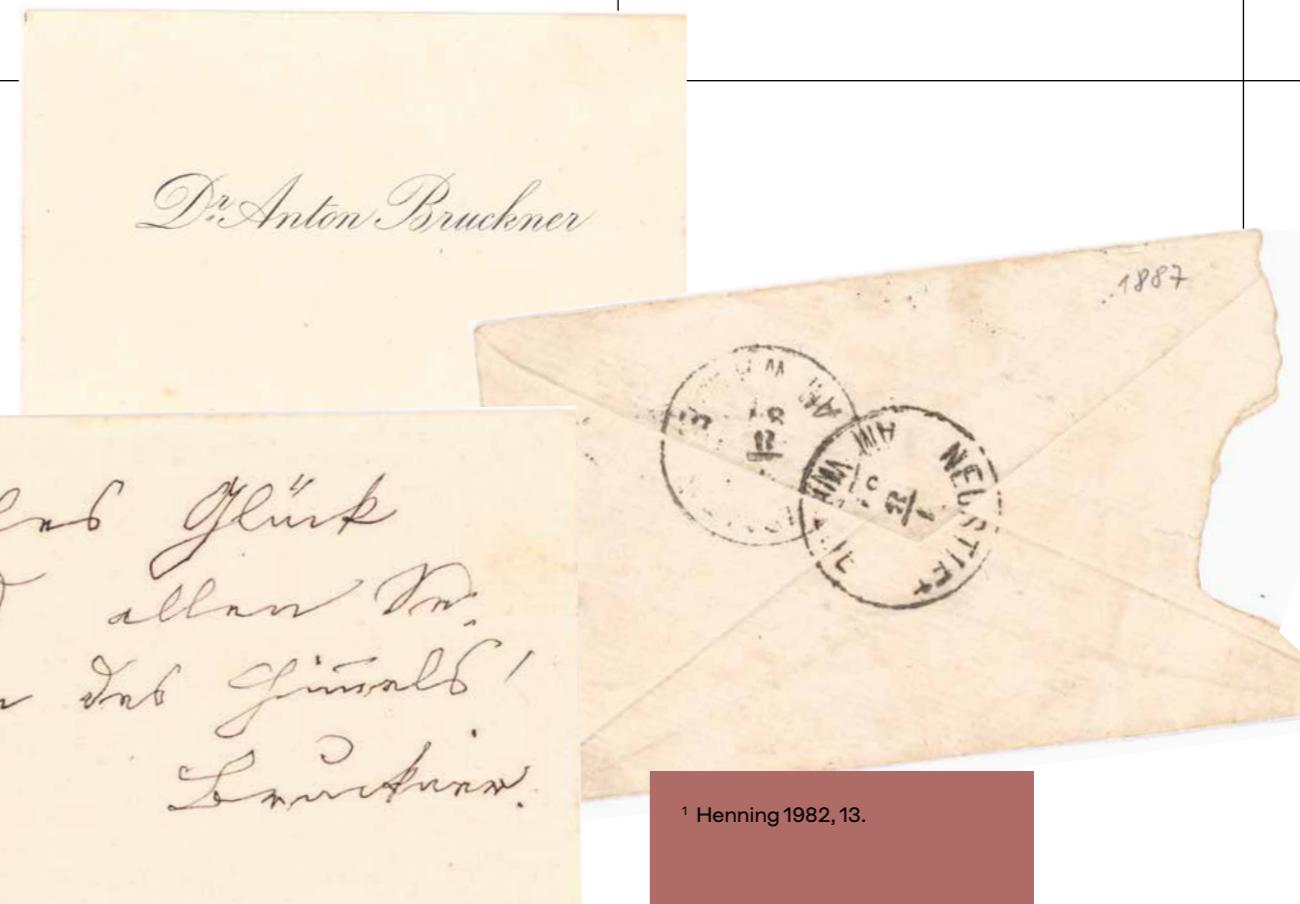 Dr. Anton Bruckner
1887
AM
NEUSTIFT
AM
les Glück
allen Se-
n des Himels!
Bruckner.
¹ Henning 1982, 13.